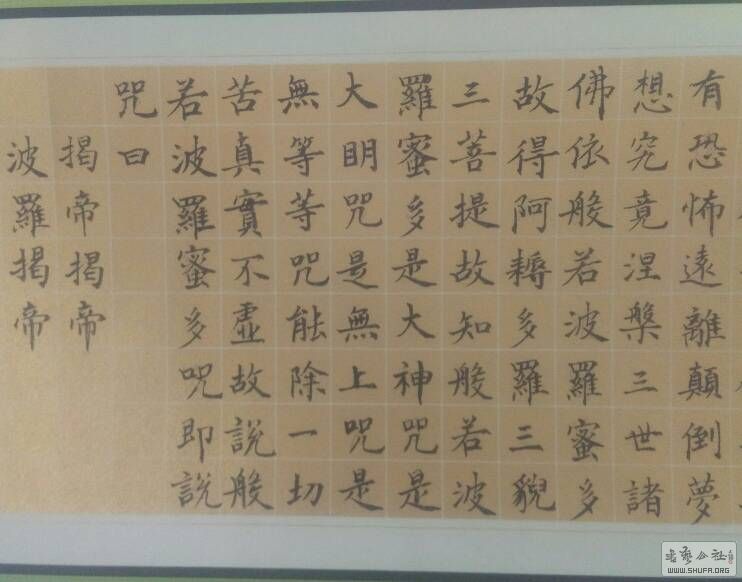 有恐怖遠離顛倒夢
想究竟涅槃三世諸
佛依般若波羅蜜多
故得阿耨多羅三貎
三菩提故知般若波
羅蜜多是大神咒是
大眀咒是無上咒是
無等等咒能除一切
苦真實不虛故說般
若波羅蜜多咒即說
咒曰
揭帝揭帝
波羅揭帝
书艺公社
WWW.SHUFA.ORG